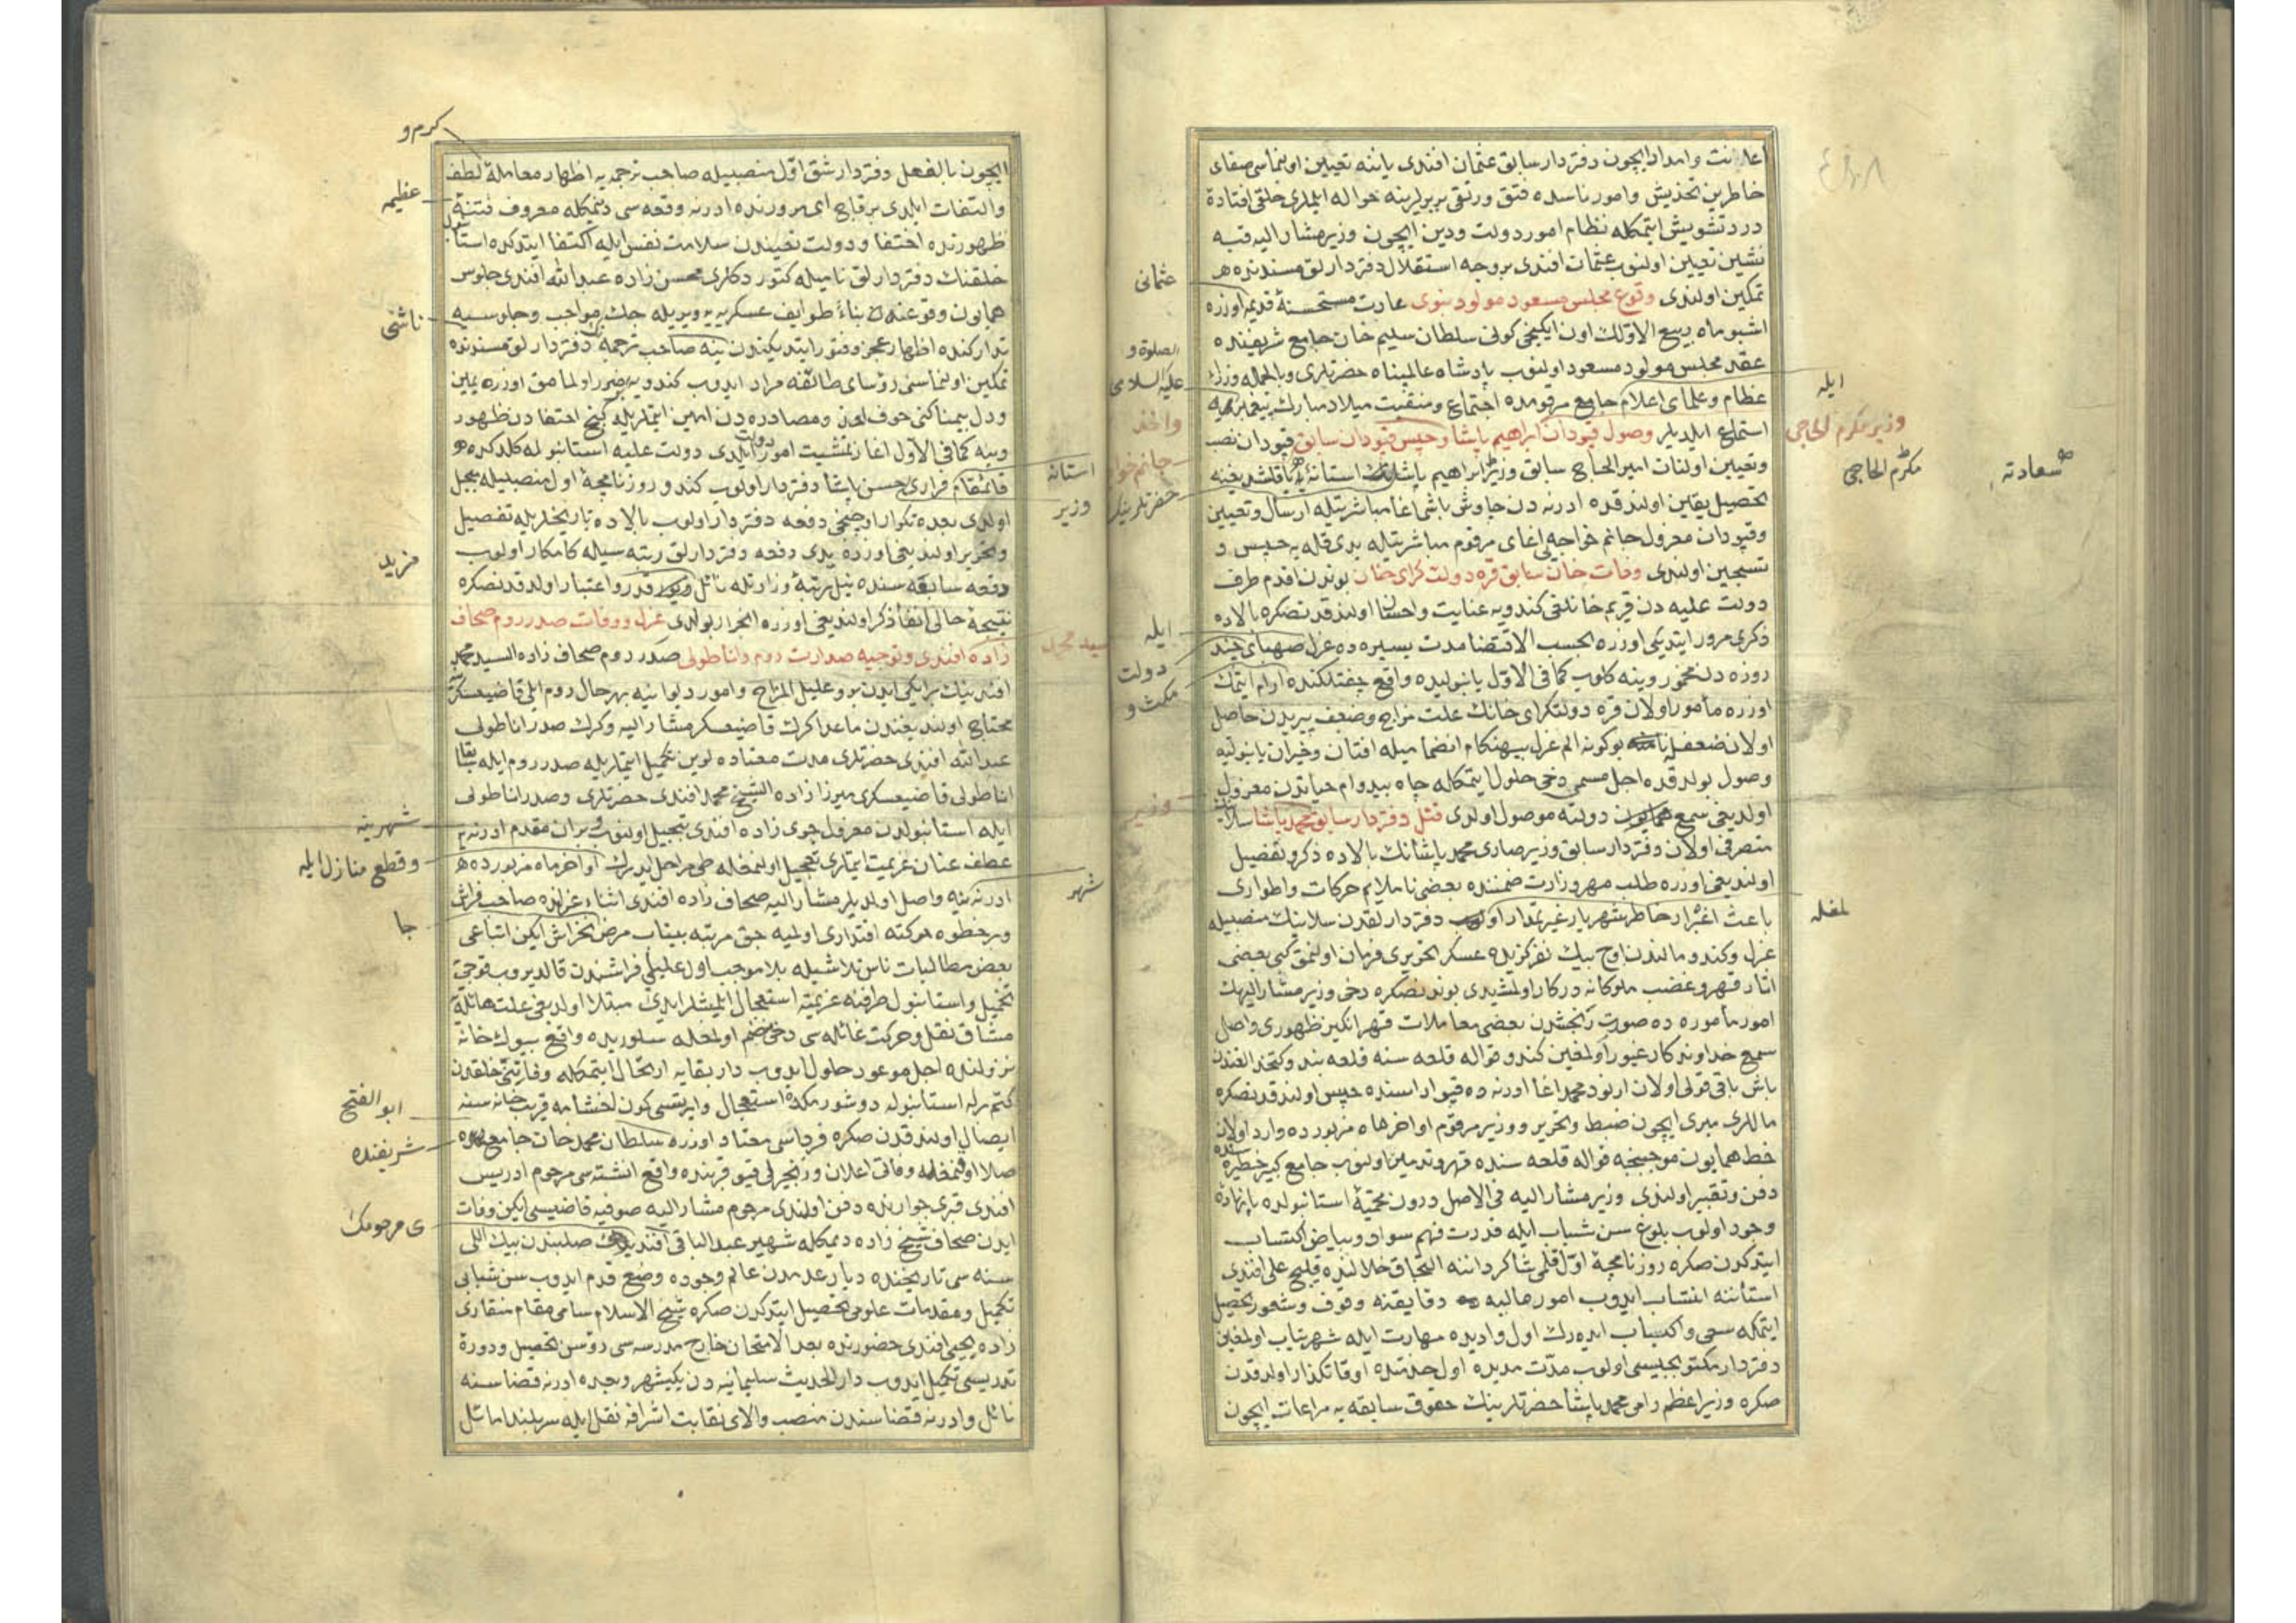 اعانت وامداد ایچون دفتردار سابق عثمان افندی یاننه تعیین اولنماسی صفای
خاطرین تخدیش وامور ناسده فتق ورتقی بربرلرینه حواله ایلملری خلقی افتادۀ
درد تشویش ایتمکله نظام امور دولت ودین ایچون وزیر مشار الیه قبه
نشین تعیین اولنوب عثمان افندی بر وجه استقلال دفتردارلق مسندنده
تمکین اولندی وقوع مجلس مسعود مولود نبوی عادت مستحسنۀ قدیم اوزره
اشبو ماه ربیع الاولك اون ایکنجی کونی سلطان سلیم خان جامع شریفنده
عقد مجلس مولود مسعود اولنوب پادشاه عالمپناه حضرتلری وبالجمله وزراء
عظام وعلمای اعلام جامع مرقومده اجتماع ومنقبت میلاد مبارك
استماع ایلدیلر وصول قپودان ابراهیم پاشا وحبس قپودان سابق قپودان نصب
وتعیین اولنان امیر الحاج سابق وزیر ابراهیم پاشا استانه
تحصیل یقین اولندقده ادرنه دن چاوش باشی اغا مباشرتیله ارسال وتعیین
وقپودان معزول جانم خواجه اغای مرقوم مباشرتیله یدی قله یه حبس و
تسجین اولندی وفات خان سابق قره دولت کرای خان بوندن اقدم طرف
دولت علیه دن قریم خانلقی کندویه عنایت واحسان اولندقدنصکره بالاده
ذکری مرور ایتدیکی اوزره بحسب الاقتضا مدت یسیره ده عزل صهبای چند
روزه دن مخمور وینه کلوب کما فی الاول یانبولیده واقع چفتلکنده ارام ایتمك
اوزره مأمور اولان قره دولتکرای خانك علت مزاج وضعف پیریدن حاصل
اولان ضعف بوکونه الم عزل بیهنکام انضمامیله افتان وخیزان یانبولیه
وصول بولدقده اجل مسمی دخی حلول ایتمکله جاه بیدوام حیاتدن معزول
اولدیغی سمع دولته موصول اولدی قتل دفتردار سابق محمد پاشا سلانیك
متصرفی اولان دفتردار سابق وزیر صاری محمد پاشانك بالاده ذکر وتفصیل
اولندیغی اوزره طلب مهر وزارت ضمننده بعضی ناملایم حرکات واطواری
باعث اغبرار خاطر شهریار غیرتمدار دفتردارلقدن سلانیك منصبیله
عزل وکندو مالندن اوچ بیك نفر کزیده عسکر تحریری فرمان اولنمق کبی بعضی
اثار قهر وغضب ملوکانه درکار اولمشیدی بوندنصکره دخی وزیر مشار الیهك
امور مأموره ده صورت رنجشدن بعضی معاملات قهر انکیز ظهوری واصل
سمع خداوندکار غیور اولمغین کندو قواله قلعه سنه قلعه بند وکتخدالغندن
باش باقی قولی اولان ارنود محمد اغا ادرنه ده قپو اراسنده حبس اولندقدنصکره
ماللری میری ایچون ضبط وتحریر ووزیر مرقوم اواخر ماه مزبورده وارد اولان
خط همایون موجبنجه قواله قلعه سنده قهر وتدمین اولنوب جامع کبیر حظیره سنده
دفن وتقبیر اولندی وزیر مشار الیه فی الاصل درون محمیۀ استانبولده پا نهادۀ
وجود اولوب بلوغ سن شباب ایله قدرت فهم سواد وبیاض اکتساب
ایتدکدن صکره روزنامچۀ اول قلمی شاکرداننه التحاق خلالنده قلیج علی افندی
استاننه انتساب ایدوب امور مالیه دقایقنه وقوف وشعور تحصیل
ایتمکه سعی واکتساب ایده رك اول وادیده مهارت ایله شهرتیاب اولمغین
دفتردار مکتوبجیسی اولوب مدت مدیده اول خدمتده اوقاتکذار اولدقدن
صکره وزیر اعظم رامی محمد پاشا حضرتلرینك حقوق سابقه یه مراعات ایچون
ایله
وزیر مکرم الحاجی
مکرم الحاجی
سعادته
لمغله
عثمانی
الصلوة و
علیه السلامی
واخذ
جانم خواجه
حضرتلرینك
ایله
دولت
مکث و
وزیر
ایچون بالفعل دفتردار شق اول منصبیله صاحب ترجمه یه اظهار معاملۀ لطف
والتفات ایلدی بر قاچ ای مرورنده ادرنه وقعه سی دیمکله معروف فتنه
ظهورنده اختفا ودولت تعیندن سلامت نفس ایله اکتفا ایتدکده استانبول
خلقنك دفتردارلق نامیله کتوردکلری محسن زاده عبدالله افندی جلوس
همایون وقوعنه بناءً طوایف عسکریه یه ویریله جك مواجب وجلوسیه
تدارکنده اظهار عجز وفتور ایتدیکندن ینه صاحب ترجمه دفتردارلق مسندنده
تمکین اولنماسنی رؤسای طائفه مراد ایدوب کندویه ضرر اولنمامق اوزره یمین
ودل بیمناکنی خوف لعن ومصادره دن امین ایتملریله کنج اختفادن ظهور
وینه کما فی الاول اغاز تمشیت امور دولت ایلدی دولت علیه استانبوله کلدکده
قائمقام فراری حسن پاشا دفتردار اولوب کندو روزنامچۀ اول منصبیله مبجل
اولدی بعده تکرار اوچنجی دفعه دفتردار اولوب بالاده تاریخلریله تفصیل
وتحریر اولندیغی اوزره یدی دفعه دفتردارلق رتبه سیله کامکار اولوب
دفعه سابقه سنده نیل رتبۀ وزارتله نائل قدر واعتبار اولدقدنصکره
نتیجۀ حالی انفا ذکر اولندیغی اوزره انجرار بولدی عزل ووفات صدر روم صحاف
زاده افندی وتوجیه صدارت روم واناطولی صدر روم صحاف زاده السید محمد
افندینك بر ایکی ایدن برو علیل المزاج وامور دیوانیه بهر حال روم ایلی قاضیعسکرینه
محتاج اولدیغندن ماعدا کرك قاضیعسکر مشار الیه وکرك صدر اناطولی
عبدالله افندی حضرتلری مدت معتاده لرین تکمیل ایتملریله صدر روم ایله بقا
اناطولی قاضیعسکری میرزا زاده الشیخ محمد افندی حضرتلری وصدر اناطولی
ایله استانبولدن معزول جوی زاده افندی تبجیل اولنوب وبر ان مقدم ادرنه یه
عطف عنان عزیمت ایتملری تعجیل اولنمغله طی مراحل ایدرك اواخر ماه مزبورده
ادرنه یه واصل اولدیلر مشار الیه صحاف زاده افندی اثناء عزلنده صاحب فراش
وبر خطوه حرکته اقتداری اولمیه جق مرتبه بیتاب مرض خراش ایکن اتباعی
بعض مطالبات ناس تلاشیله بلا موجب اول علیلی فراشندن قالدیروب قوچی یه
تحمیل واستانبول طرفنه عزیمته استعجال ایلمشلر ایدی مبتلا اولدیغی علت هائله یه
مشاق نقل وحرکت غائله سی دخی منضم اولمغله سلوریده واقع بیوك خانه
نزولنده اجل موعود حلول ایدوب دار بقایه ارتحال ایتمکله وفاتنی خلقدن
کتم برله استانبوله دوشورمکده استعجال وایرتسی کون اخشامه قریب خانه سنه
ایصال اولندقدن صکره فرداسی معتاد اوزره سلطان محمد خان جامع
صلا اولنمغله وفاتی اعلان وزنجیرلی قپو قربنده واقع انشته سی مرحوم ادریس
افندی قبری جوارنده دفن اولندی مرحوم مشار الیه صوفیه قاضیسی ایکن وفات
ایدن صحاف شیخ زاده دیمکله شهیر عبد الباقی افندینك صلبندن بیك اللی
سنه سی تاریخنده دیار عدمدن عالم وجوده وضع قدم ایدوب سن شبابی
تکمیل ومقدمات علومی تحصیل ایتدکدن صکره شیخ الاسلام سامی مقام منقاری
زاده یحیی افندی حضورنده بعد الامتحان خارج مدرسه سی رؤسن تحصیل ودورۀ
تدریسی تکمیل ایدوب دار الحدیث سلیمانیه دن یکیشهر وبعده ادرنه قضاسنه
نائل وادرنه قضاسندن منصب والای نقابت اشرافه نقل ایله سربلند اماثل
کرم و
عظیمه
ناشی
مزید
شهرینه
وقطع منازل ایله
جا
ابو الفتح
شریفنده
ی مرحومك
استانه
وزیر
سید محمد
شهر